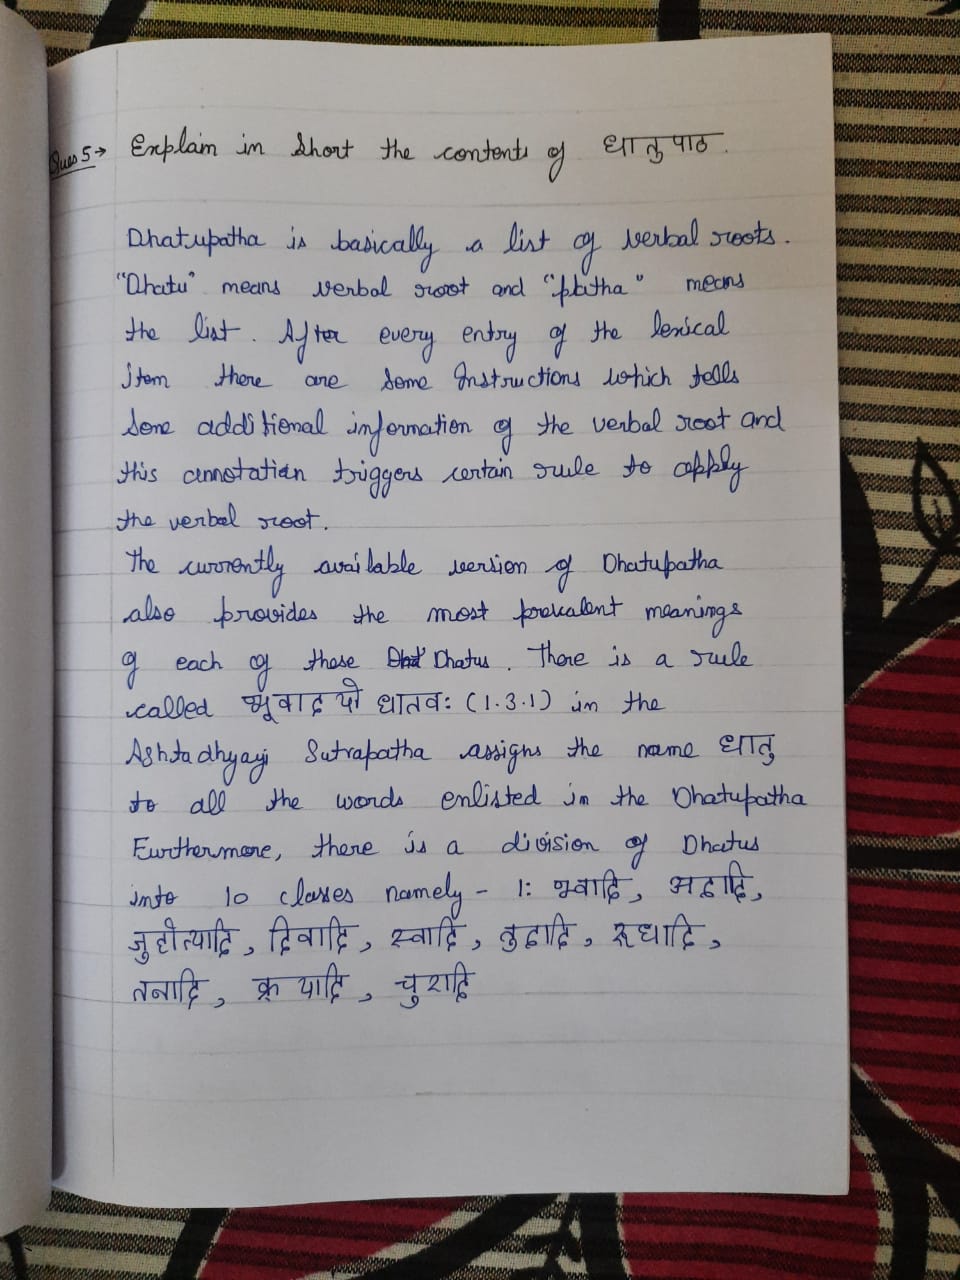 Ques 5→ Explain in short the contents of धातु पाठ.
Dhatupatha is basically a list of verbal roots.
"Dhatu" means verbal root and "patha" means
the list. After every entry of the lexical
item there are some Instructions which tells
some additional information of the verbal root and
this annotation triggers certain rule to apply
the verbal root.
The currently available version of Dhatupatha
also provides the most prevalent meanings
of each of these Dhatus. There is a rule
called भूवादयो धातवः (1.3.1) in the
Ashtadhyayi Sutrapatha assigns the name धातु
to all the words enlisted in the Dhatupatha
Furthermore, there is a division of Dhatus
into 10 classes namely - 1: भ्वादि, अदादि,
जुहोत्यादि, दिवादि, स्वादि, तुदादि, रूधादि,
तनादि, क्रयादि, चुरादि